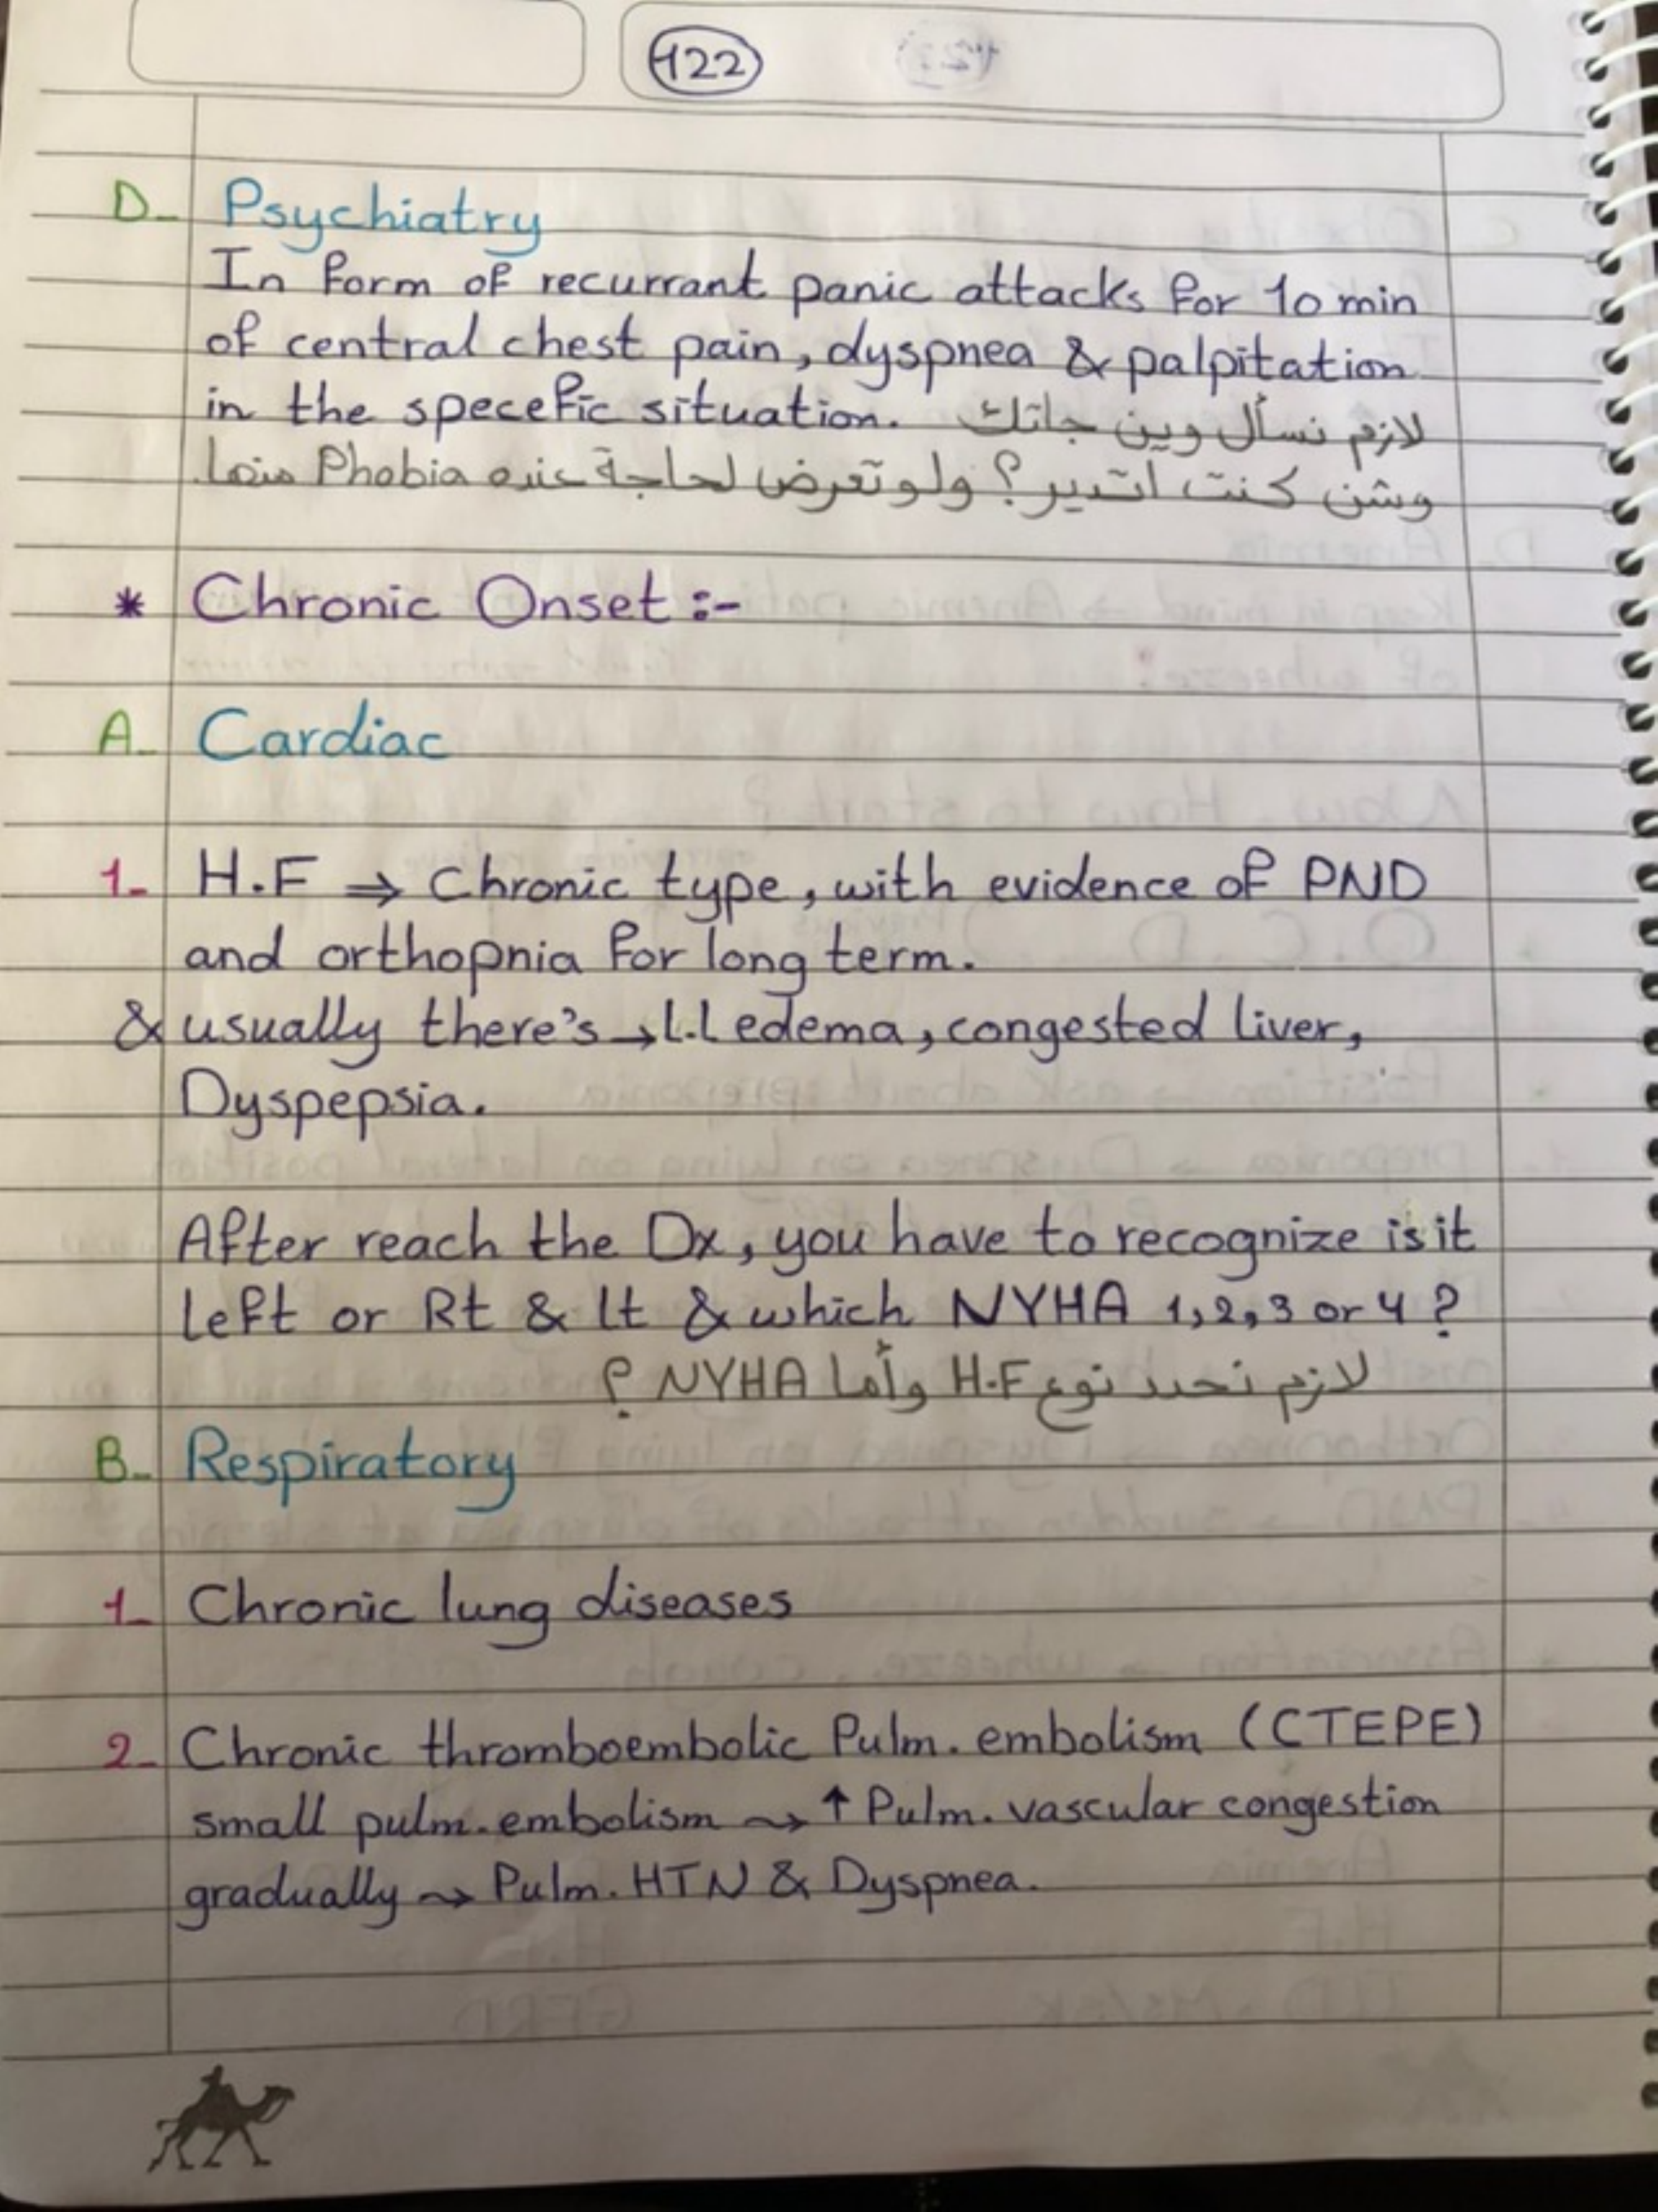 122
D- Psychiatry
In form of recurrant panic attacks for 10 min
of central chest pain, dyspnea & palpitation
in the specefic situation. لازم نسأل وين جاتك
وشن كنت اتدير؟ ولو تعرض لحاجة عنده Phobia منها.
* Chronic Onset :-
A- Cardiac
1- H.F ⇒ Chronic type, with evidence of PND
and orthopnia for long term.
& usually there's → L.L edema, congested liver,
Dyspepsia.
After reach the Dx, you have to recognize is it
left or Rt & lt & which NYHA 1,2,3 or 4 ?
لازم نحدد نوع H.F وأما NYHA ؟
B- Respiratory
1- Chronic lung diseases
2- Chronic thromboembolic Pulm. embolism (CTEPE)
small pulm. embolism ⇝ ↑ Pulm. vascular congestion
gradually ⇝ Pulm. HTN & Dyspnea.